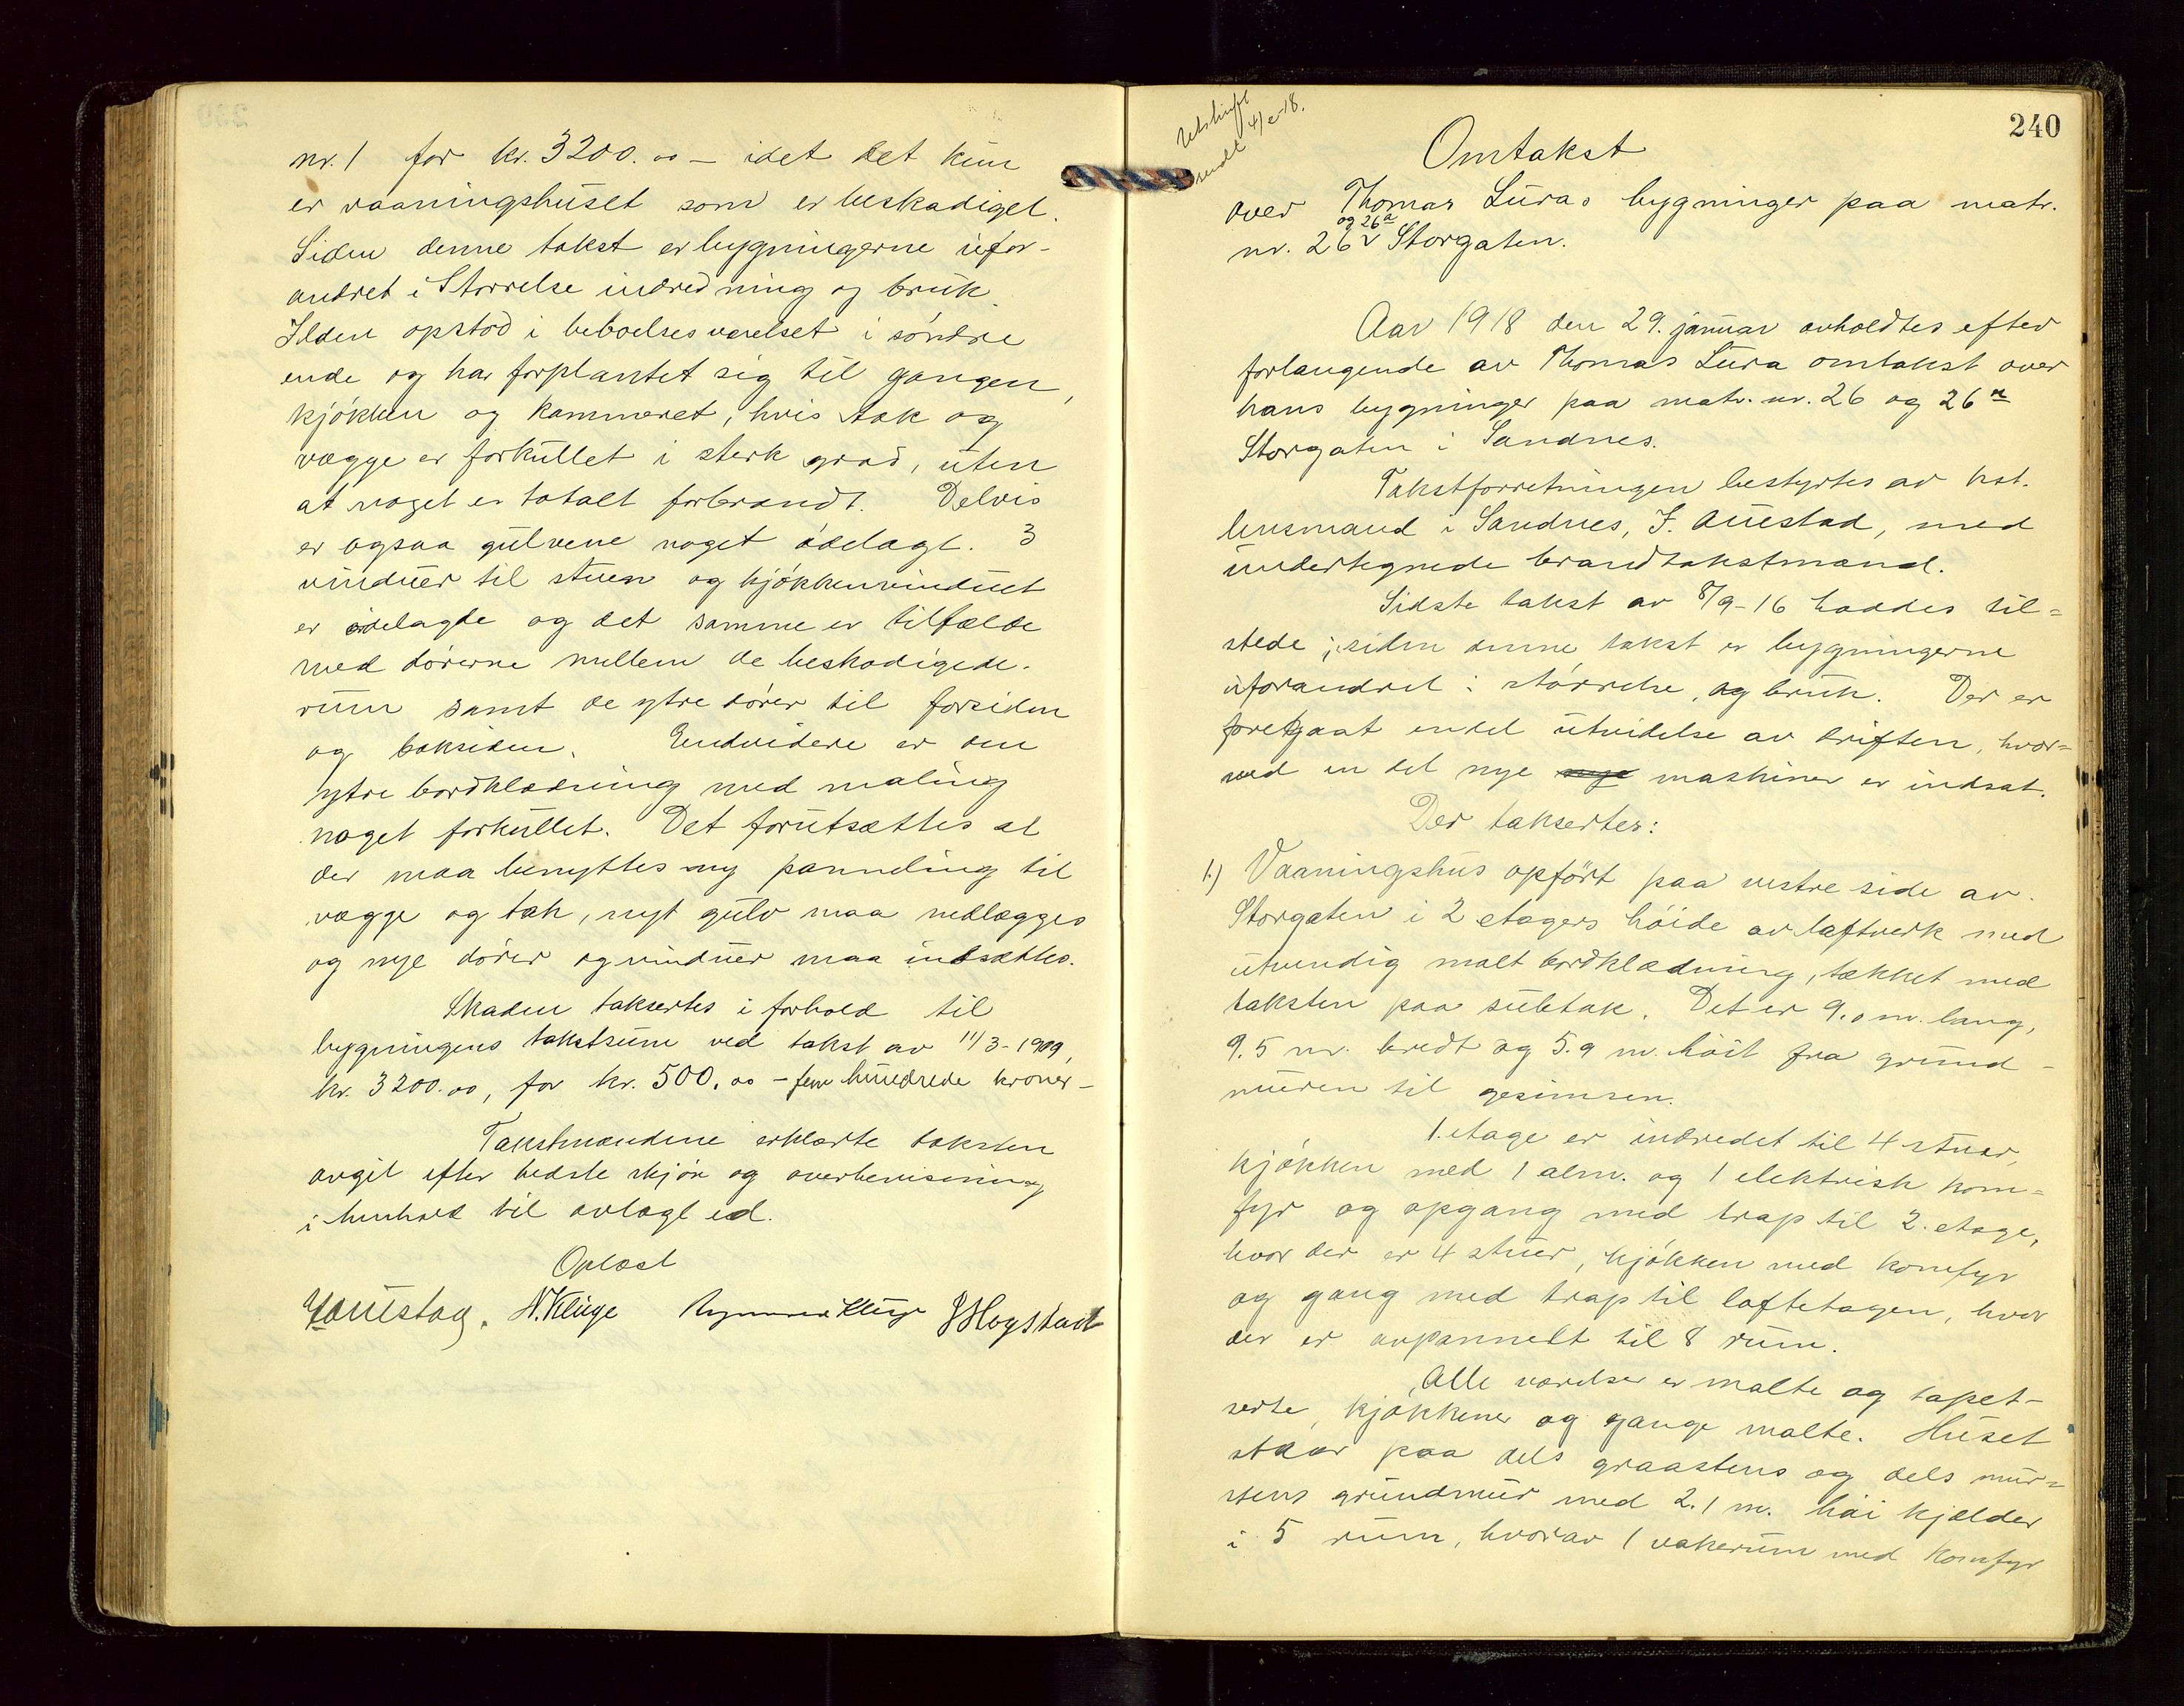 nr. 1 for kr. 3200.00 – idet det kun
er vaaningshuset som er beskadiget.
Siden denne takst er bygningerne ufor-
andret i Størrelse indredning og bruk.
Ilden opstod i beboelsesværelset i søndre
ende og har forplantet sig til gangen,
kjøkken og kammeret, hvis tak og
vægge er forkullet i sterk grad, uten
at noget er totalt forbrændt. Delvis
er ogsaa gulvene noget ødelagt. 3
vinduer til stuen og kjøkkenvinduet
er ødelagte og det samme er tilfælde
med dørerne mellem de beskadigede
rum samt de ytre dører til forsiden
og baksiden. Endvidere er den
ytre bordklædning med maling
noget forkullet. Det forutsættes at
der maa benyttes ny panneling til
vægge og tak, nyt gulv maa nedlægges
og nye dører og vinduer maa indsættes.
Skaden taksertes i forhold til
bygningens takstsum ved takst av 11/3-1909,
kr. 3200.00, for kr. 500.00 – fem hundrede kroner –
Takstmændene erklærte taksten
avgit efter bedste skjøn og overbevisning
i henhold til avlagt ed.
Oplæst
N. Kluge J Hogstad
240
Utskrift
sendt 4/2-18.
Omtakst
over Thomas Luras bygninger paa matr.
og 26a
nr. 26 Storgaten.
Aar 1918 den 29. januar avholdtes efter
forlangende av Thomas Lura omtakst over
hans bygninger paa matr. nr. 26 og 26a
Storgaten i Sandnes.
Takstforretningen bestyrtes av kst.
lensmand i Sandnes, J. Auestad, med
undertegnede brandtakstmænd.
Sidste takst av 8/9-16 haddes til=
stede; siden denne takst er bygningerne
uforandret i størrelse, og bruk. Der er
foregaat endel utvidelse av driften, hvor=
ved en del nye nye maskiner er indsat.
Der taksertes:
1.) Vaaningshus opført paa vestre side av
Storgaten i 2 etagers høide av laftverk med
utvendig malt bordklædning, tækket med
taksten paa subtak. Det er 9.0 m. lang,
9.5 m. bredt og 5.9 m. høit fra grund-
muren til gesimsen.
1. etage er indredet til 4 stuer,
kjøkken med 1 alm. og 1 elektrisk kom=
fyr og opgang med trap til 2. etage,
hvor der er 4 stuer, kjøkken med komfyr
og gang med trap til loftetagen, hvor
der er avpannelt til 8 rum.
Alle værelser er malte og tapet-
serte, kjøkkener og gange malte. Huset
staar paa dels graastens og dels mur=
stens grundmur med 2.1 m. høi kjælder
i 5 rum, hvorav 1 vakerum med komfyr